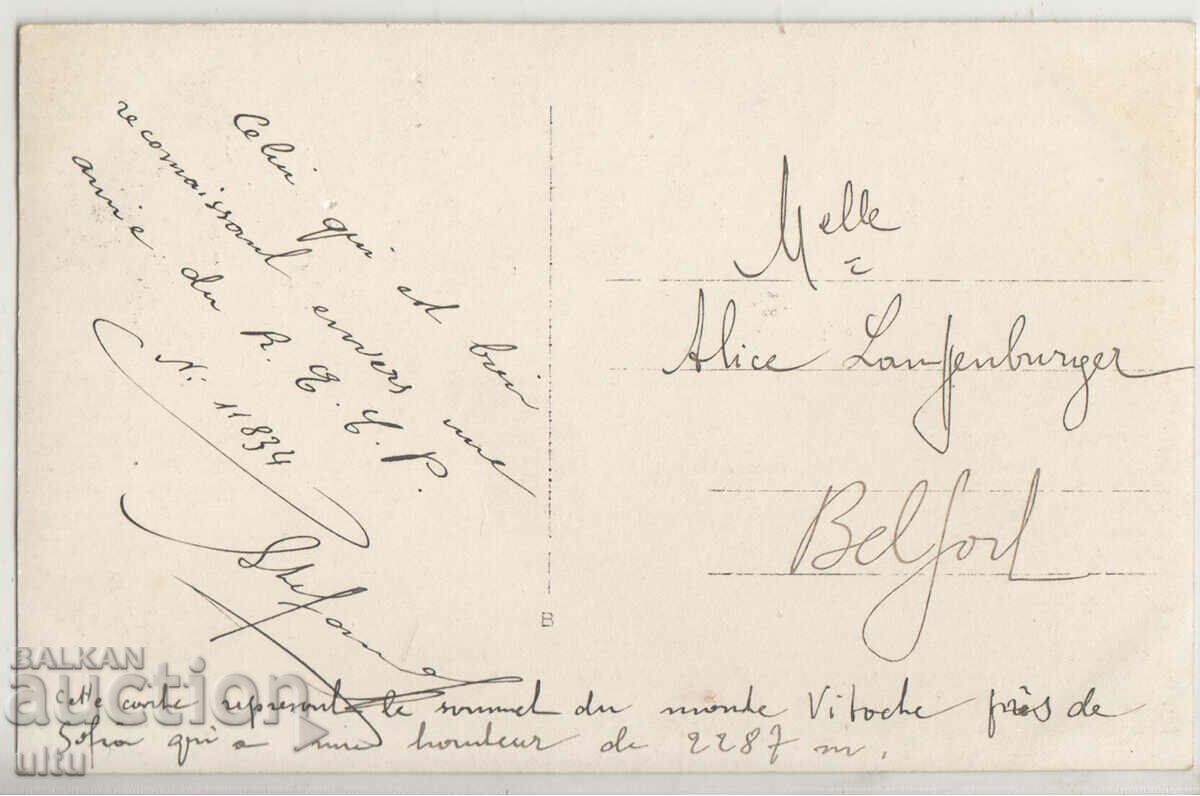 Celui qui est bien
reconnaissant envers une
amie du R. E. C. P.
N. 11834
Stefano
Melle
Alice Lauffenburger
Belfort
B
Cette carte represent le sommet du monte Vitoche près de
Sofia qui a une hauteur de 2287 m.
BALKAN
auction
ultu